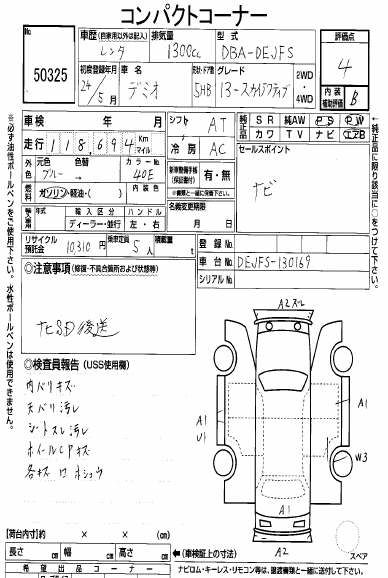 コンパクトコーナー
出品No. 50325
車歴(自家用以外は記入) レンタ
排気量 1300cc
型式 DBA-DEJFS
評価点 4
初度登録年月 24年/5月
車名 デミオ
形状・ドア数 5HB
グレード 13-スカイアクティブ
2WD・4WD
内装補助評価 B
車検 年 月
シフト AT
純正品 SR 純AW PS PW
カワ TV ナビ エアB
走行 118,694 Km マイル
冷房 AC
セールスポイント
ナビ
元色 ブルー→
色替
カラーNo. 40E
新車整備手帳(保証書付) 有・無
燃料 ガソリン・軽油・( )
内装色
名義変更期限 月 日
年式
輸入区分 ディーラー・並行
ハンドル 左・右
リサイクル預託金 10,310円
乗車定員 5人
積載量 t
登録No.
車台No. DEJFS-130169
シリアルNo.
◎注意事項(修復・不具合箇所および状態等)
ナビSD後送
◎検査員報告(USS使用欄)
内バリキズ
天バリ汚レ
シートスレ汚レ
ホイールCPキズ
各キズ ワ ホシュウ
A2スレ
A1
U1
A1
W3
A1
A2
スペア
【荷台内寸】 × × cm
長さ cm 幅 cm 高さ cm ←(車検証上の寸法)
希望出品コーナー
ナビロム・キーレス・リモコン等は、譲渡書類と一緒に送付して下さい。
※必ず油性ボールペンをご使用下さい。水性ボールペンは使用できません。